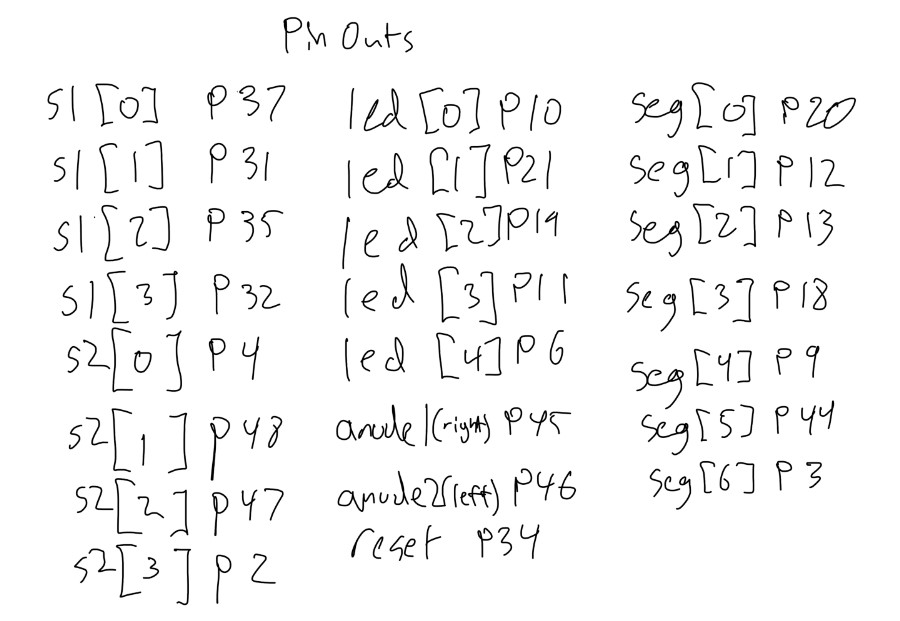 Pin Outs
s1[0] P37
s1[1] P31
s1[2] P35
s1[3] P32
s2[0] P4
s2[1] P48
s2[2] P47
s2[3] P2
led[0] P10
led[1] P21
led[2] P19
led[3] P11
led[4] P6
anode1(right) P45
anode2(left) P46
reset P34
seg[0] P20
seg[1] P12
seg[2] P13
seg[3] P18
seg[4] P9
seg[5] P44
seg[6] P3